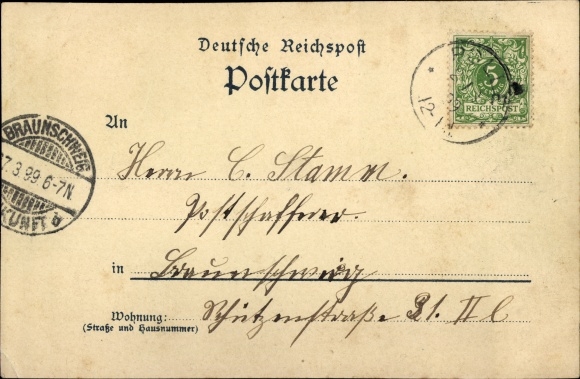 Deutsche Reichspost
Postkarte
5
REICHSPOST
12-1 N.
BRAUNSCHWEIG
7.3.99 6-7N.
KUNFT
An
Herrn C. Stamm.
Postschaffner.
in Braunschweig
Wohnung: Schützenstraße 21. II l
(Straße und Hausnummer)